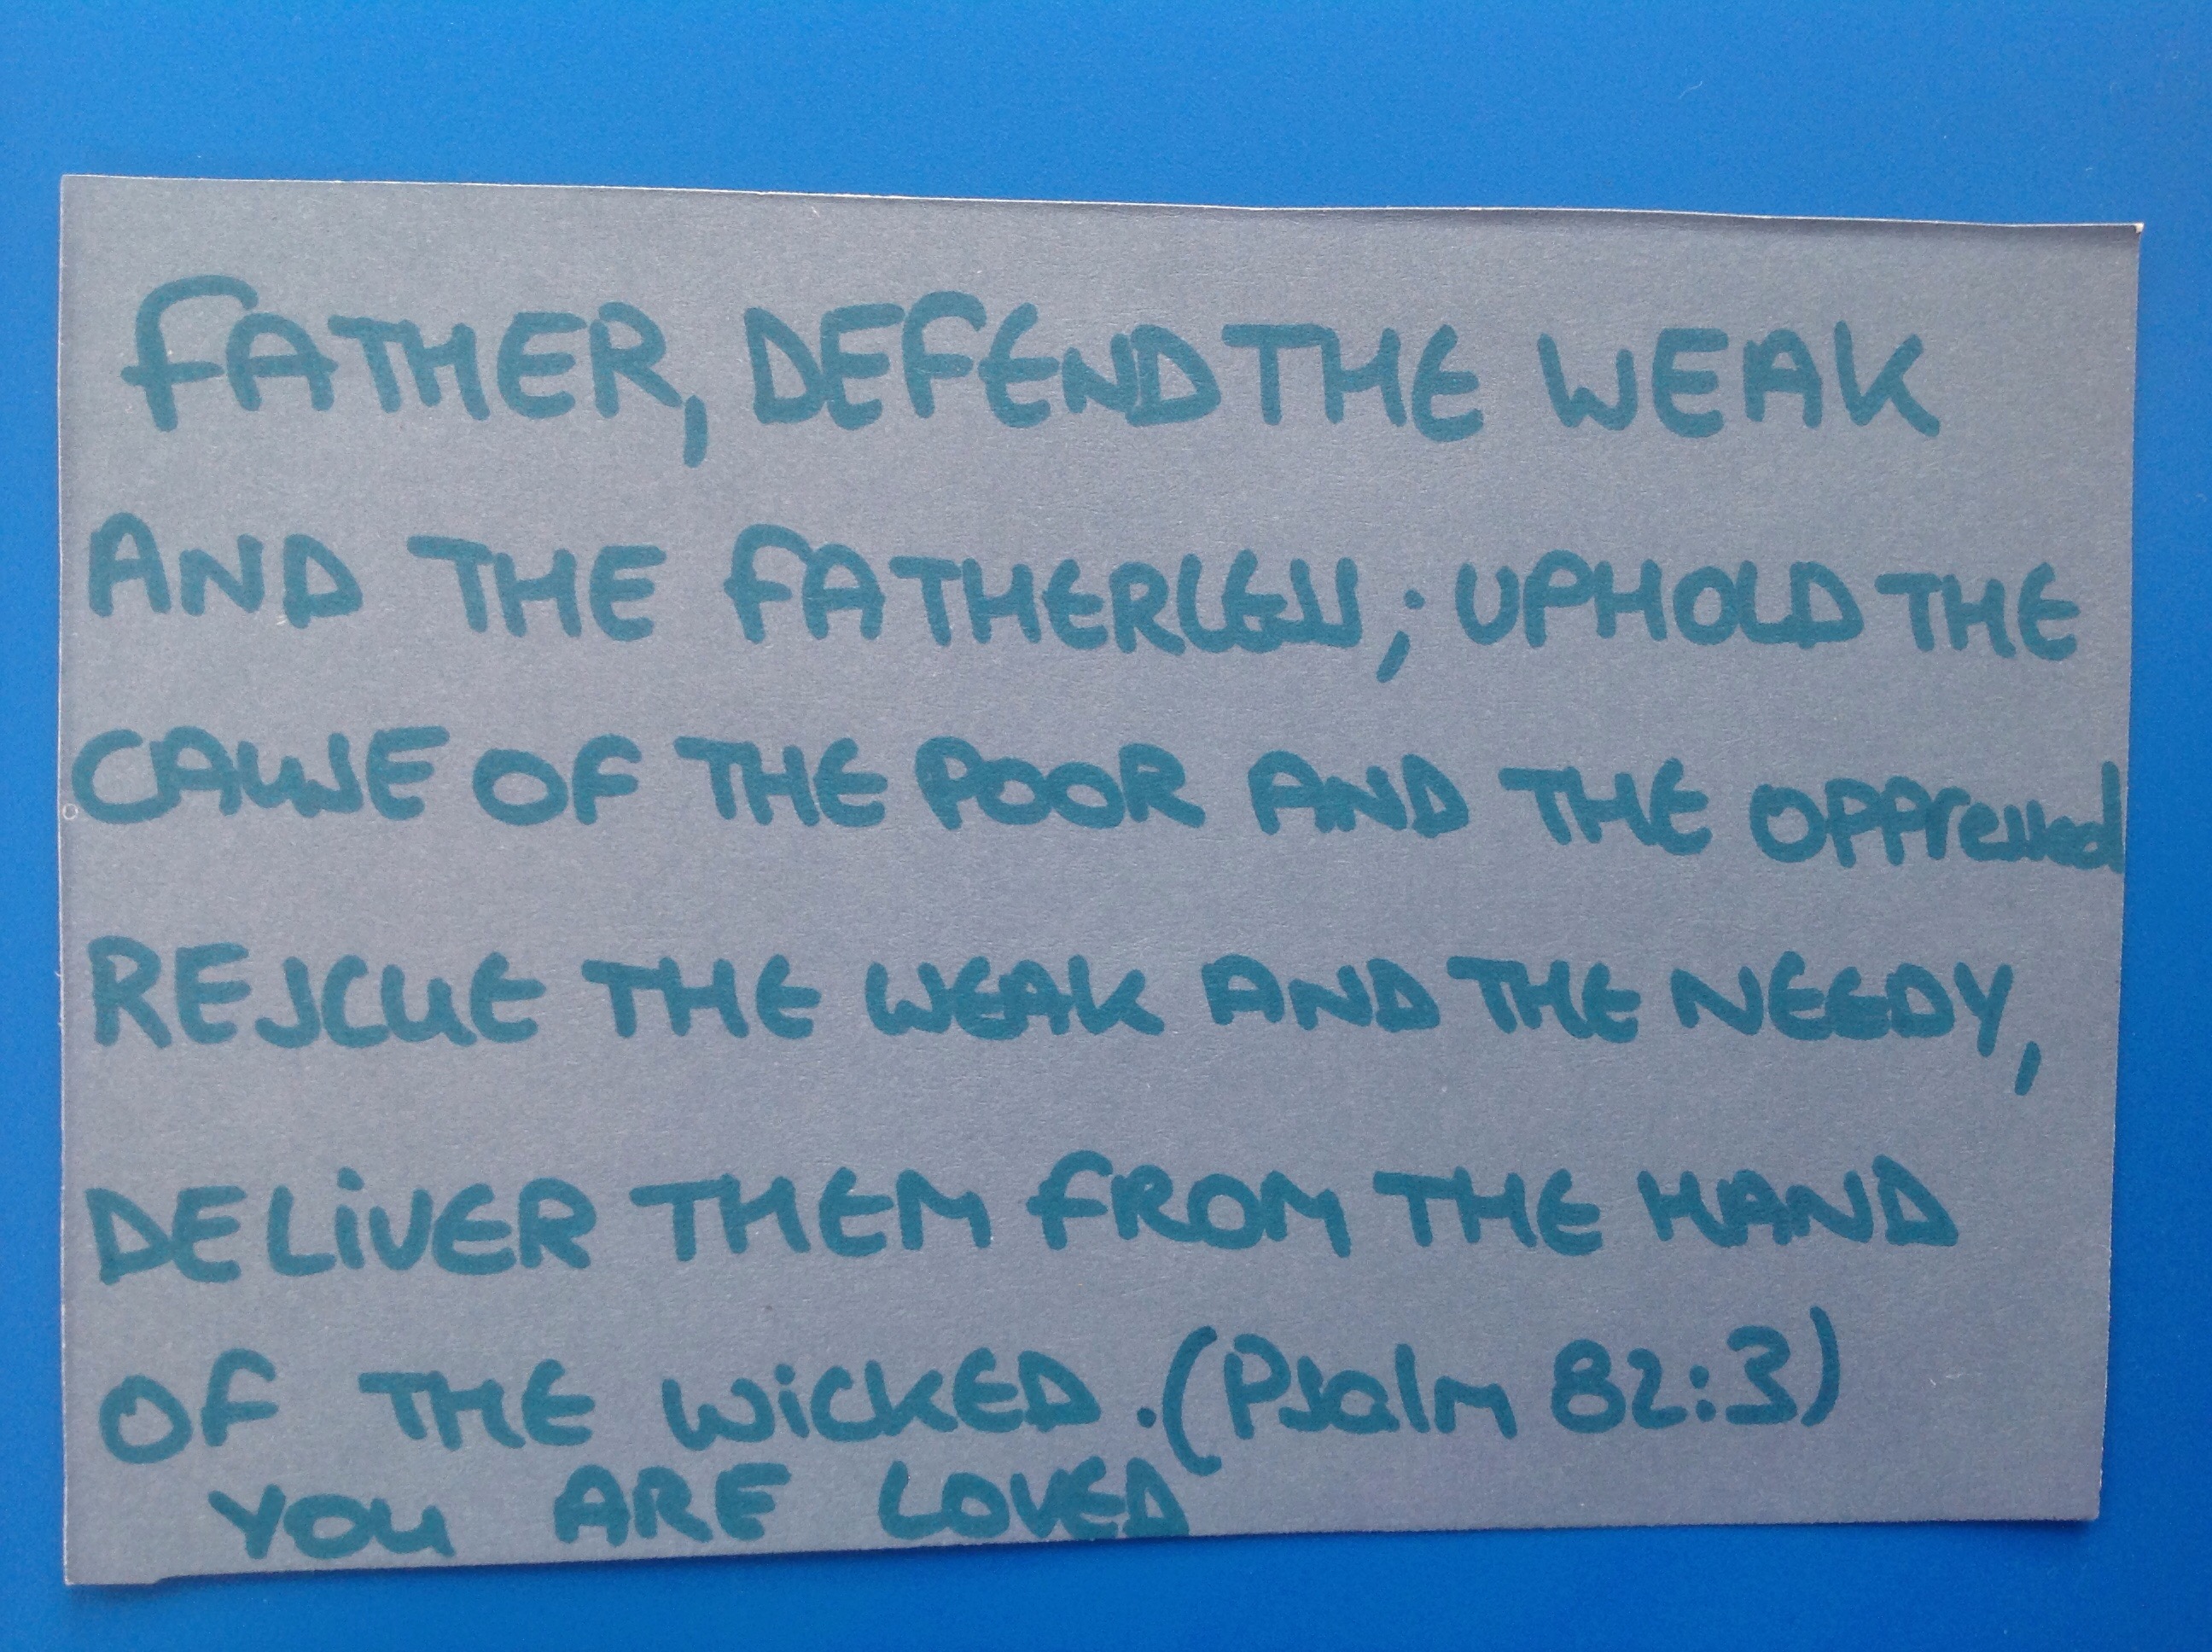 FATHER, DEFEND THE WEAK
AND THE FATHERLESS; UPHOLD THE
CAUSE OF THE POOR AND THE OPPressed
RESCUE THE WEAK AND THE NEEDY,
DELiVER THEM FROM THE HAND
OF THE WiCKED. (Psalm 82:3)
YOU ARE LOVED